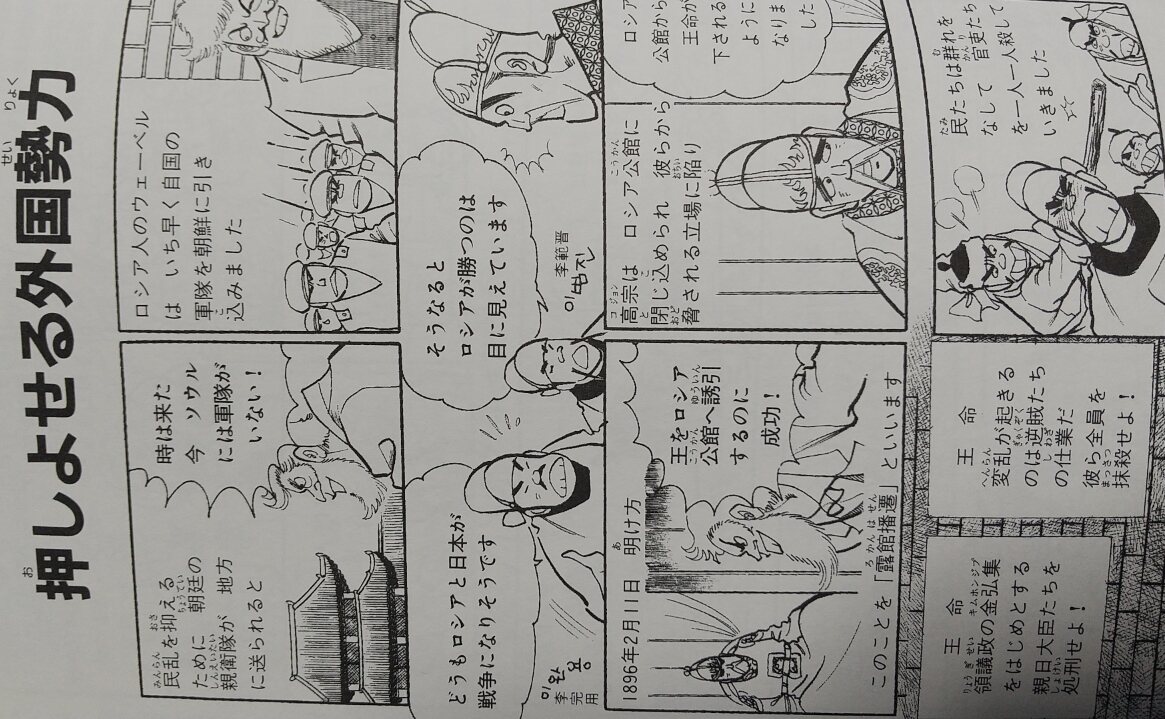 押しよせる外国勢力
民乱を抑える
ために 朝廷の
親衛隊が 地方
に送られると
時は来た
今 ソウル
には軍隊が
いない！
ロシア人のウェーベル
は いち早く自国の
軍隊を朝鮮に引き
込みました
どうもロシアと日本が
戦争になりそうです
이완용
李完用
そうなると
ロシアが勝つのは
目に見えています
李範晋
이범진
1896年2月11日 明け方
王をロシア
公館へ誘引
するのに
成功！
このことを「露館播遷」といいます
高宗は ロシア公館に
閉じ込められ 彼らから
脅される立場に陥り
ロシア
公館から
王命が
下される
ように
なりま
した
王 命
領議政の金弘集
をはじめとする
親日大臣たちを
処刑せよ！
王 命
変乱が起きる
のは逆賊たち
の仕業だ
彼ら全員を
抹殺せよ！
民たちは群れを
なして 官吏たち
を一人一人殺して
いきました